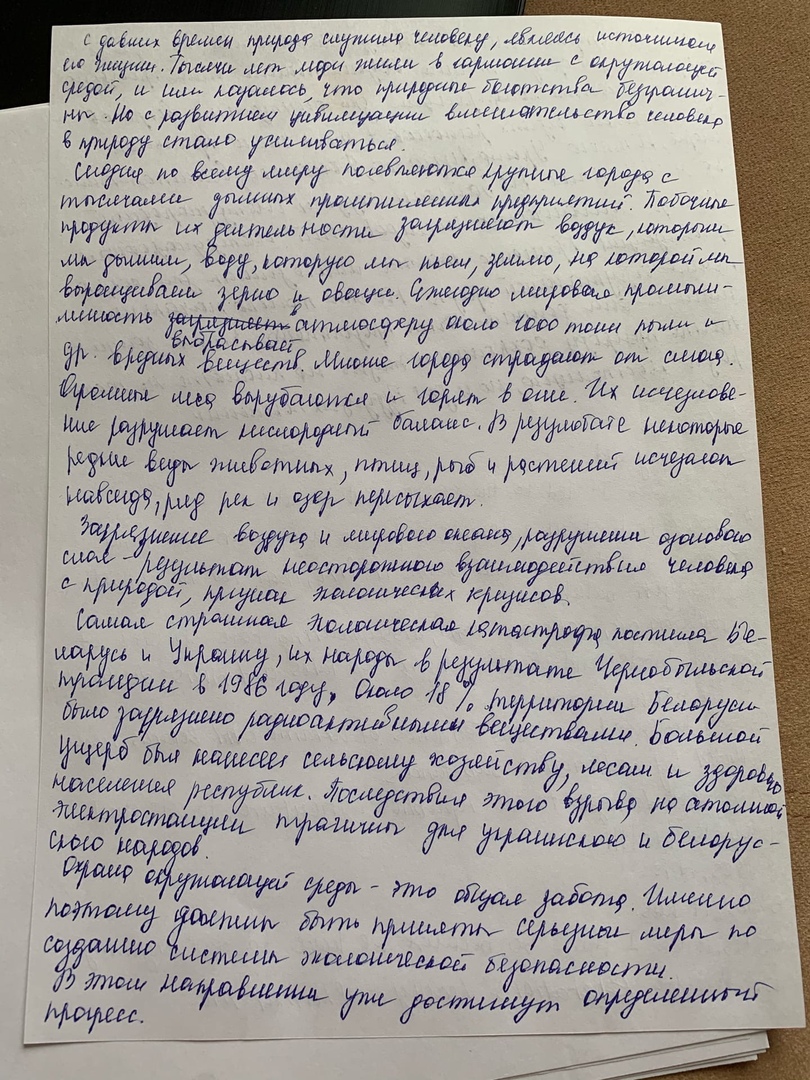 С давних времен природа служила человеку, являясь источником
его жизни. Тысячи лет люди жили в гармонии с окружающей
средой, и им казалось, что природные богатства безгранич-
ны. Но с развитием цивилизации вмешательство человека
в природу стало усиливаться.
Сегодня по всему миру появляются крупные города с
тысячами дымных промышленных предприятий. Побочные
продукты их деятельности загрязняют воздух, которым
мы дышим, воду, которую мы пьем, землю, на которой мы
выращиваем зерно и овощи. Ежегодно мировая промыш-
ленность загрязняет в атмосферу около 1000 тонн пыли и
выбрасывает
др. вредных веществ. Многие города страдают от смога.
Огромные леса вырубаются и горят в огне. Их исчезнове-
ние разрушает кислородный баланс. В результате некоторые
редкие виды животных, птиц, рыб и растений исчезают
навсегда, ряд рек и озер пересыхает.
Загрязнение воздуха и мирового океана, разрушение озонового
слоя - результат неосторожного взаимодействия человека
с природой, признак экологических кризисов.
Самая страшная экологическая катастрофа постигла Бе-
ларусь и Украину, их народы в результате Чернобыльской
трагедии в 1986 году. Около 18% территории Белоруси
было загрязнено радиоактивными веществами. Большой
ущерб был нанесен сельскому хозяйству, лесам и здоровью
населения республик. Последствия этого взрыва на атомной
электростанции трагичны для украинского и белорус-
ского народов.
Охрана окружающей среды - это общая забота. Именно
поэтому должны быть приняты серьезные меры по
созданию системы экологической безопасности.
В этом направлении уже достигнут определенный
прогресс.